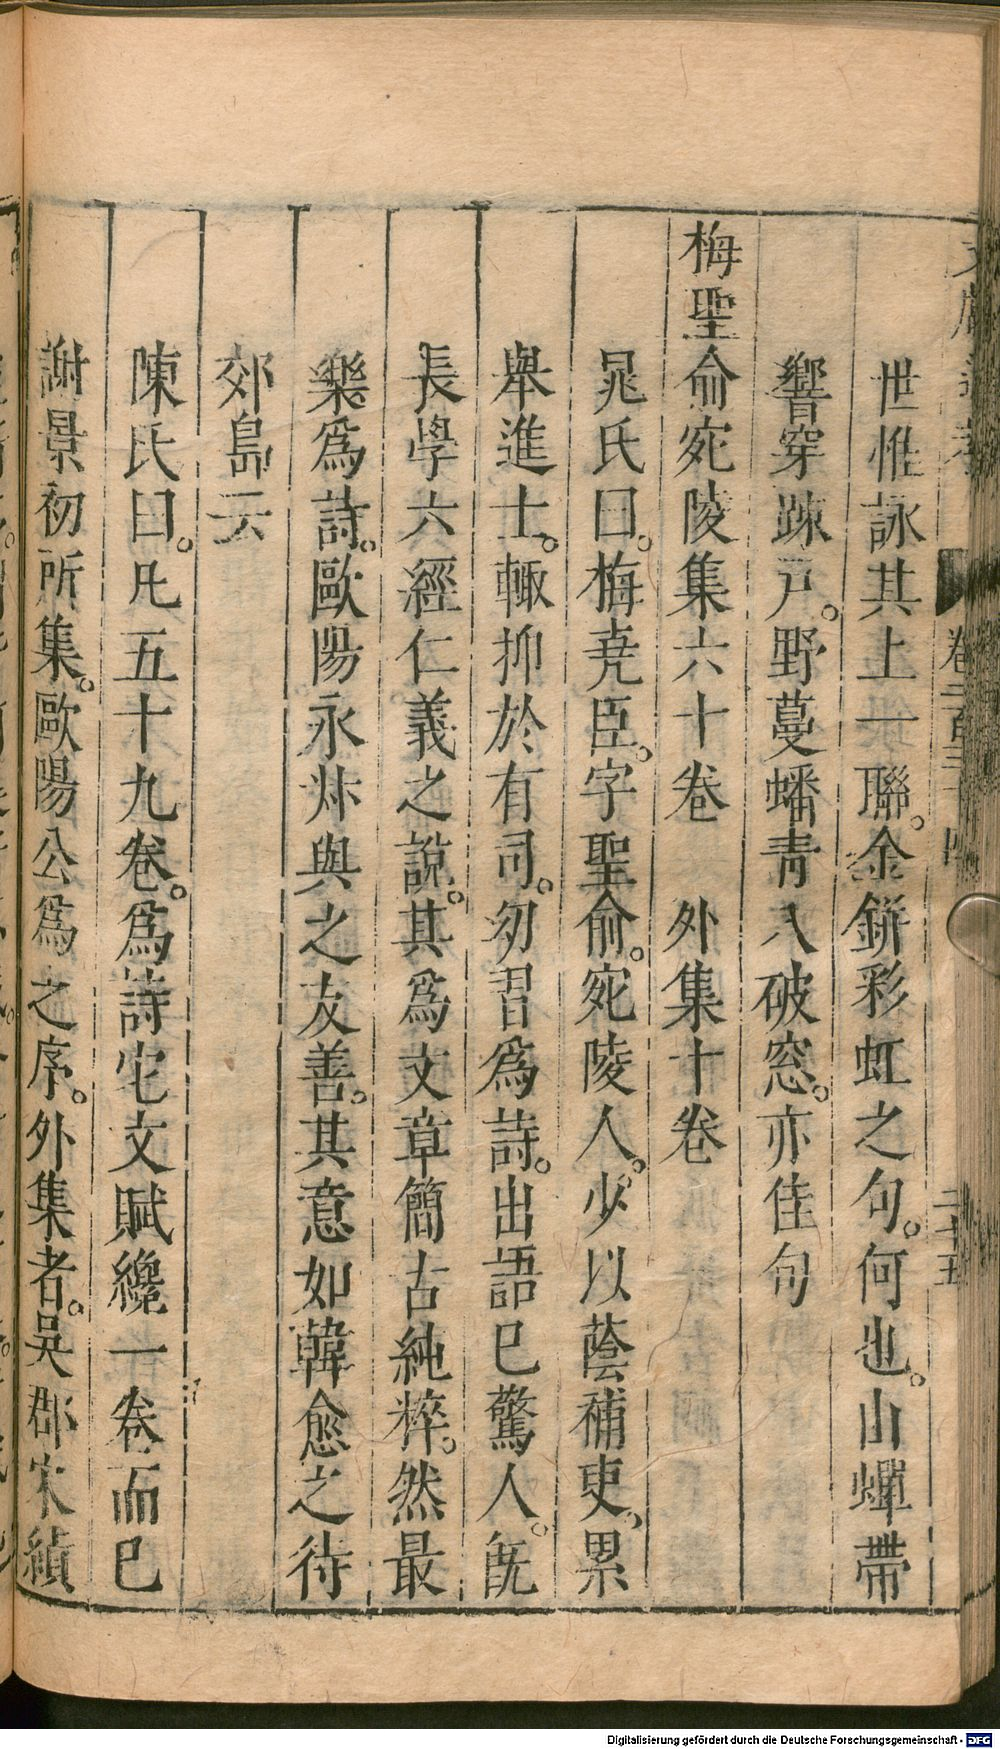 世惟詠其上一聯。金鉼彩虹之句。何也。山蟬帶
響穿疎戸。野蔓蟠青入破窓。亦佳句
梅聖俞宛陵集六十卷　外集十卷
晁氏曰。梅堯臣。字聖俞。宛陵人。少以蔭補吏。累
舉進士。輙抑於有司。㓜習爲詩。出語巳驚人。既
長學六經仁義之說。其爲文章簡古純粹。然最
樂爲詩。歐陽永叔與之友善。其意如韓愈之待
郊島云
陳氏曰。凡五十九卷。爲詩它文賦纔一卷而巳
謝景初所集。歐陽公爲之序。外集者。吳郡宋績
卷二百三十四
二十五
Digitalisierung gefördert durch die Deutsche Forschungsgemeinschaft - DFG